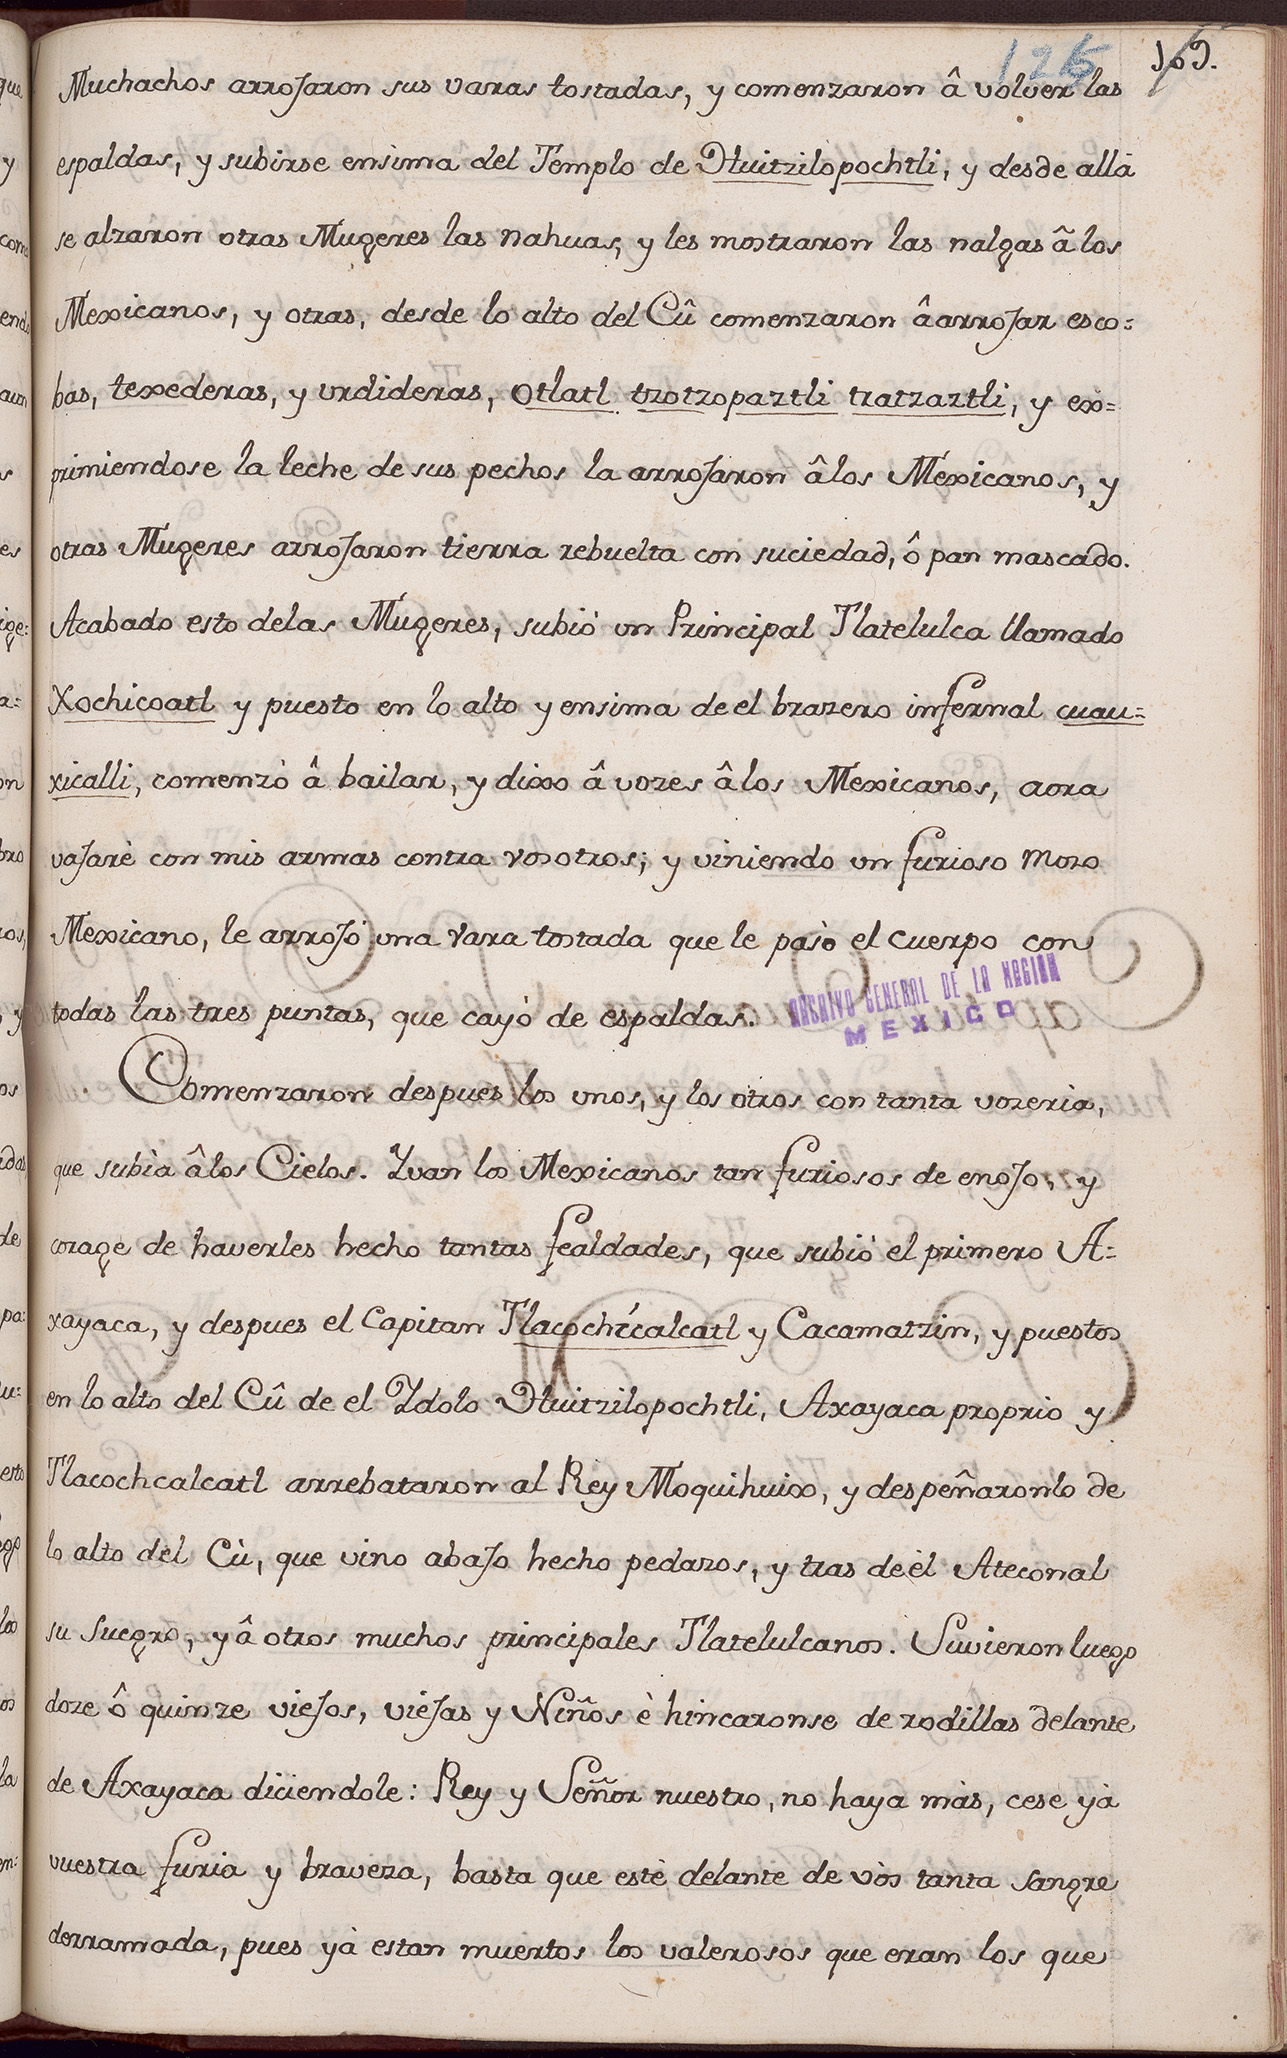 125 169.
Muchachos arroJaron sus varas tostadas, y comenzaron â volver las
espaldas, y subirse ensima del Templo de Huitzilopochtli, y desde allà
se alzaron otras Mugeres las nahuas, y les mostraron las nalgas â los
Mexicanos, y otras, desde lo alto del Cû comenzaron â arroJar esco=
bas, texederas, y urdideras, otlatl tzotzopaztli tzatzaztli, y ex=
primiendose la leche de sus pechos la arroJaron â los Mexicanos, y
otras Mugeres arroJaron tierra rebuelta con suciedad, ô pan mascado.
Acabado esto delas Mugeres, subiò un Principal Tlatelulca llamado
Xochicoatl y puesto en lo alto y ensima de el brazero infernal cuau=
xicalli, comenzò â bailar, y dixo â vozes â los Mexicanos, aora
vaJarè con mis armas contra vosotros; y viniendo un furioso mozo
Mexicano, le arroJò una vara tostada que le pasò el cuerpo con
todas las tres puntas, que cayò de espaldas.
ARCHIVO GENERAL DE LA NACION
MEXICO
Comenzaron despues los unos, y los otros con tanta vozeria,
que subìa â los Cielos. Yvan los Mexicanos tan furiosos de enoJo, y
corage de haverles hecho tantas fealdades, que subiò el primero A=
xayaca, y despues el Capitan Tlacochcalcatl y Cacamatzin, y puestos
en lo alto del Cû de el Ydolo Huitzilopochtli, Axayaca proprio y
Tlacochcalcatl arrebataron al Rey Moquihuix, y despeñaronlo de
lo alto del Cù, que vino abaJo hecho pedazos, y tras de èl Ateconal
su Suegro, y â otros muchos principales Tlatelulcanos. Suvieron luego
doze ô quinze vieJos, vieJas y Niños è hincaronse de rodillas delante
de Axayaca diciendole: Rey y Señor nuestro, no haya màs, cese yà
vuestra furia y braveza, basta que estè delante de vòs tanta sangre
derramada, pues yà estan muertos los valerosos que eran los que